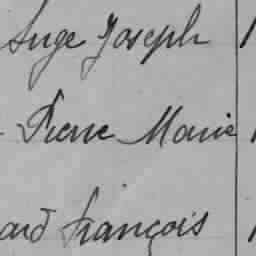 Ange Joseph
Pierre Marie
François